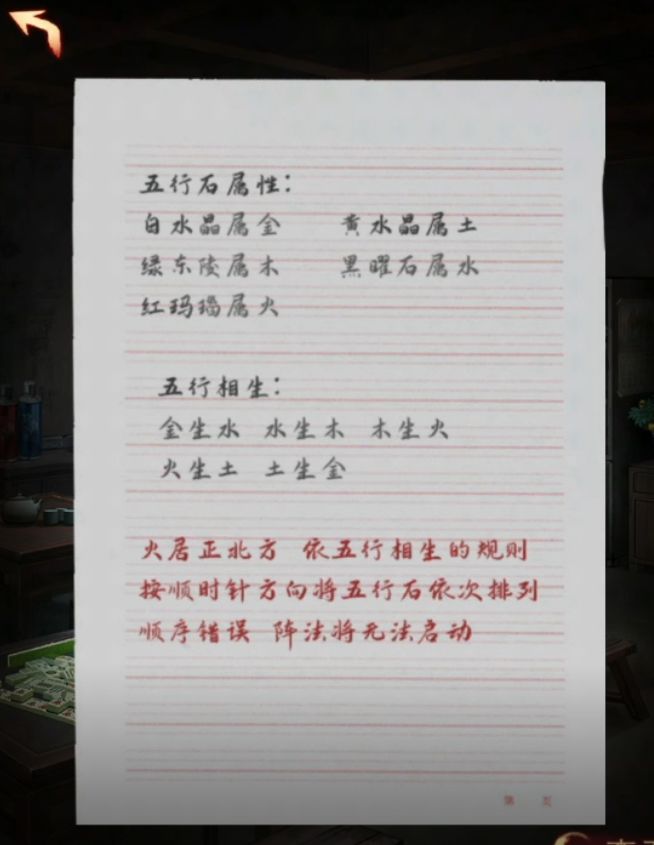 五行石属性：
白水晶属金 黄水晶属土
绿东陵属木 黑曜石属水
红玛瑙属火
五行相生：
金生水 水生木 木生火
火生土 土生金
火居正北方 依五行相生的规则
按顺时针方向将五行石依次排列
顺序错误 阵法将无法启动
第 页